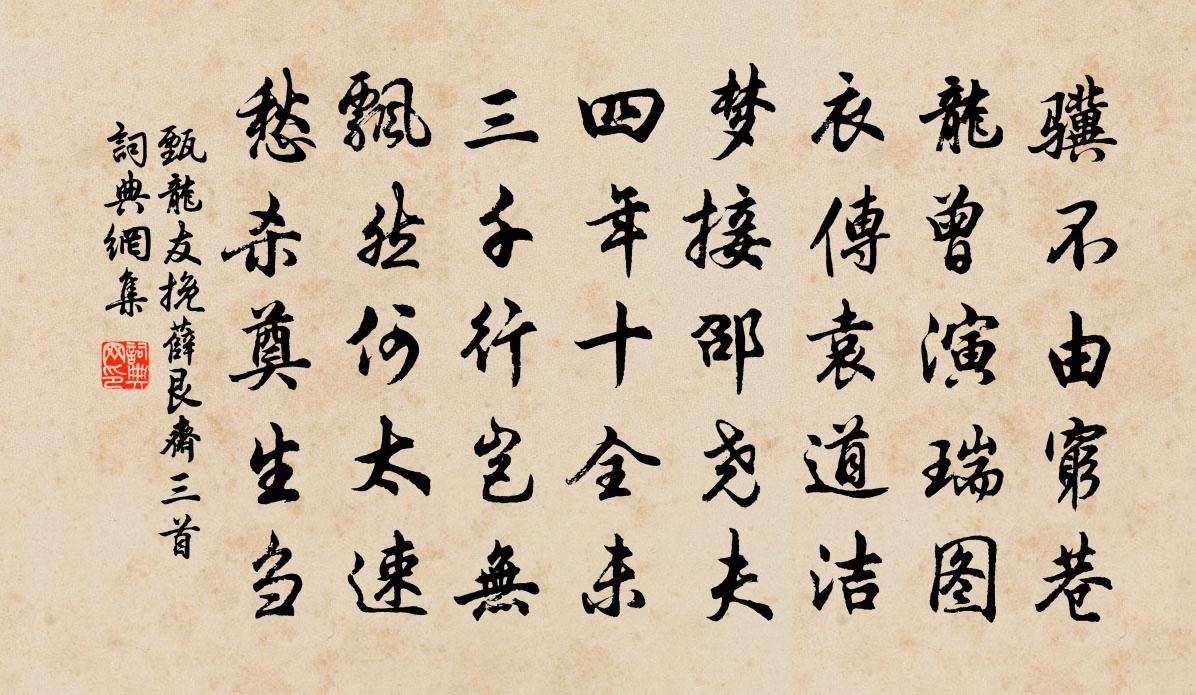 骥不由窮巷
龍曾演瑞图
衣傳袁道洁
梦接邵尧夫
四年十全未
三千行岂無
飄然何太速
愁杀奠生刍
甄龍友挽薛艮齋三首
詞典網集
詞典网印